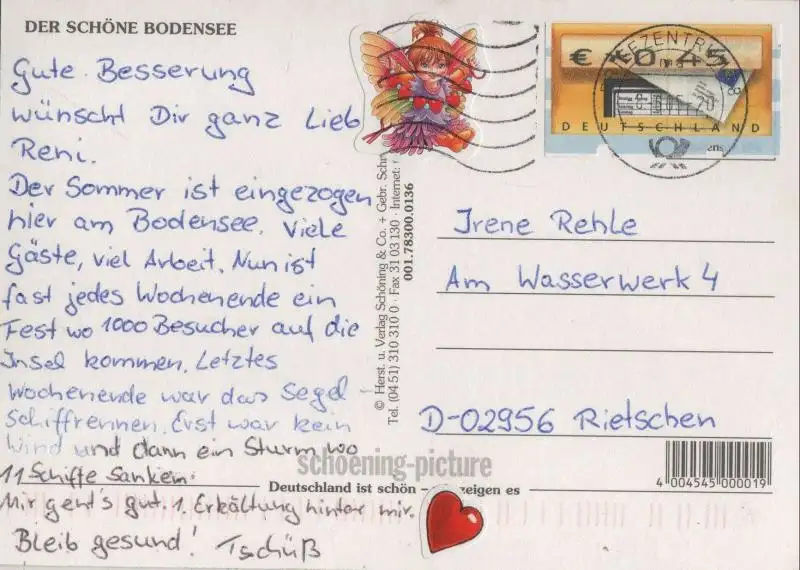 DER SCHÖNE BODENSEE
Gute Besserung
wünscht Dir ganz Lieb
Reni.
Der Sommer ist eingezogen
hier am Bodensee. Viele
Gäste, viel Arbeit. Nun ist
fast jedes Wochenende ein
Fest wo 1000 Besucher auf die
Insel kommen. Letztes
Wochenende war das Segel-
Schiffrennen. Erst war kein
Wind und dann ein Sturm wo
11 Schiffe sanken.
Mir geht's gut. 1. Erkältung hinter mir.
Bleib gesund! Tschüß
© Herst. u. Verlag Schöning & Co. + Gebr.
Tel. (04 51) 310 310 0 · Fax 31 03 130 · Internet:
001.78300.0136
€ *0,45
DEUTSCHLAND
BRIEFZENTRUM
Irene Rehle
Am Wasserwerk 4
D-02956 Rietschen
schoening-picture
Deutschland ist schön - zeigen es
4 004545 000019